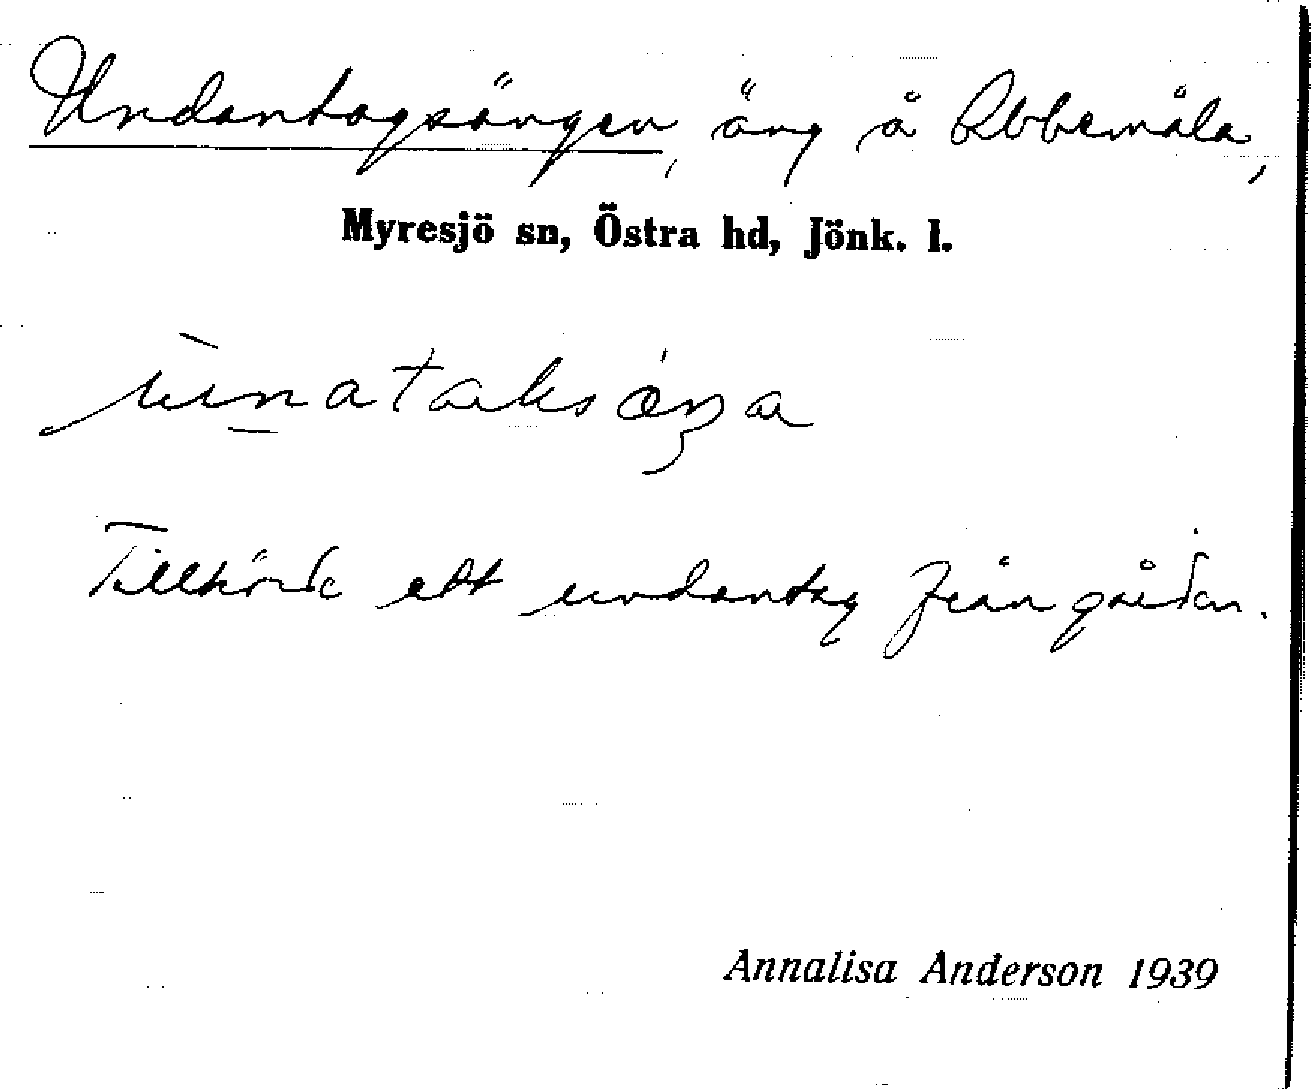 Undantagsängen, äng å Abbemåla,
Myresjö sn, Östra hd, Jönk. l.
Tillhörde ett undantag från gården.
Annalisa Anderson 1939